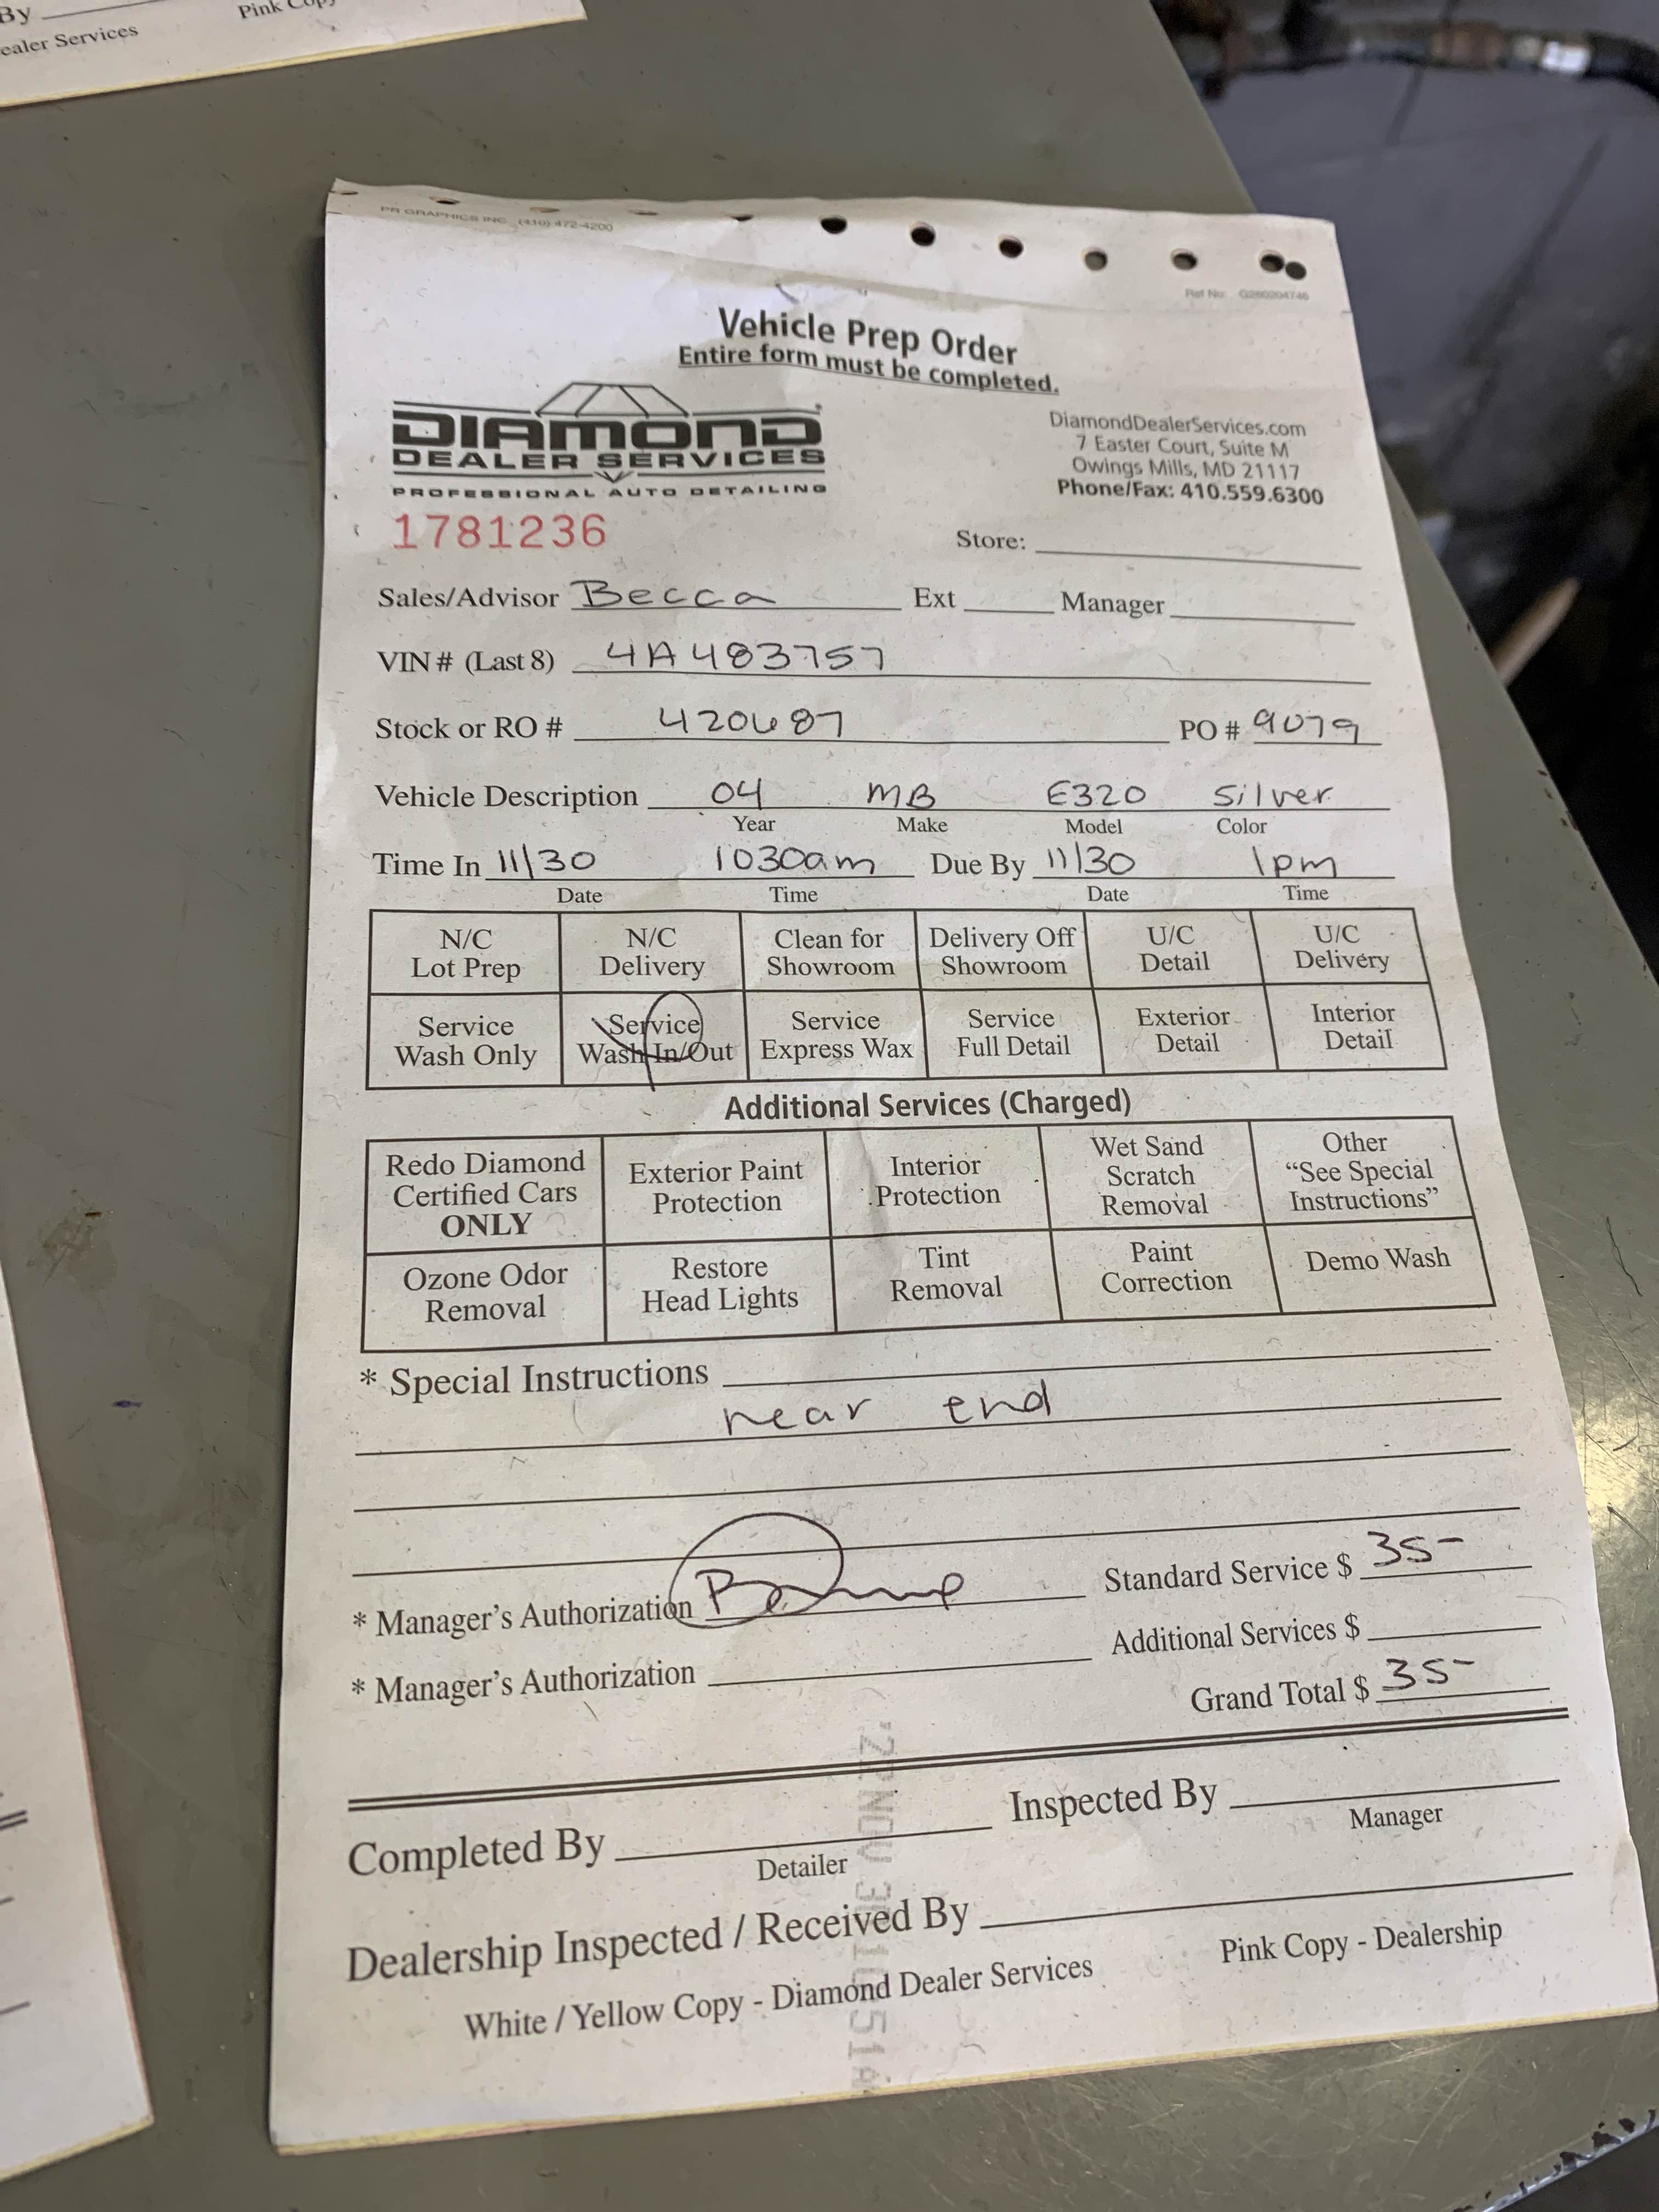 By
Pink Copy
ealer Services
PR GRAPHICS INC. (410) 472-4200
Ref No: G260204746
Vehicle Prep Order
Entire form must be completed.
DIAMOND
DEALER SERVICES
PROFESSIONAL AUTO DETAILING
DiamondDealerServices.com
7 Easter Court, Suite M
Owings Mills, MD 21117
Phone/Fax: 410.559.6300
1781236
Store:
Sales/Advisor Becca Ext Manager
VIN # (Last 8) 4A483757
Stock or RO # 420687 PO # 9079
Vehicle Description 04 MB E320 Silver
Year Make Model Color
Time In 11/30 1030am Due By 11/30 1pm
Date Time Date Time
N/C Lot Prep
N/C Delivery
Clean for Showroom
Delivery Off Showroom
U/C Detail
U/C Delivery
Service Wash Only
Service Wash In/Out
Service Express Wax
Service Full Detail
Exterior Detail
Interior Detail
Additional Services (Charged)
Redo Diamond Certified Cars ONLY
Exterior Paint Protection
Interior Protection
Wet Sand Scratch Removal
Other "See Special Instructions"
Ozone Odor Removal
Restore Head Lights
Tint Removal
Paint Correction
Demo Wash
* Special Instructions
near end
* Manager's Authorization Standard Service $ 35-
Additional Services $
* Manager's Authorization
Grand Total $ 35-
Completed By Inspected By
Detailer Manager
Dealership Inspected / Received By
White / Yellow Copy - Diamond Dealer Services Pink Copy - Dealership